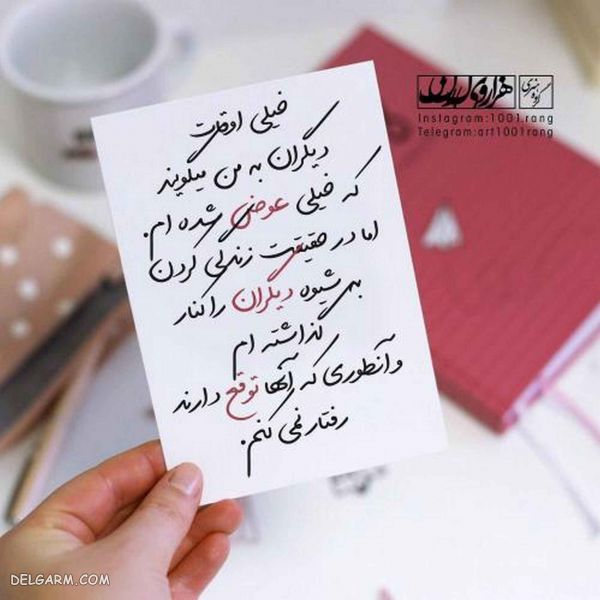 خیلی اوقات
دیگران به من میگویند
که خیلی عوض شده ام.
اما در حقیقت زندگی کردن
به شیوه دیگران را کنار
گذاشته ام
و آنطوری که آنها توقع دارند
رفتار نمی کنم.
گروه هنری
هزار و یک رنگ
Instagram:1001.rang
Telegram:art1001rang
DELGARM.COM